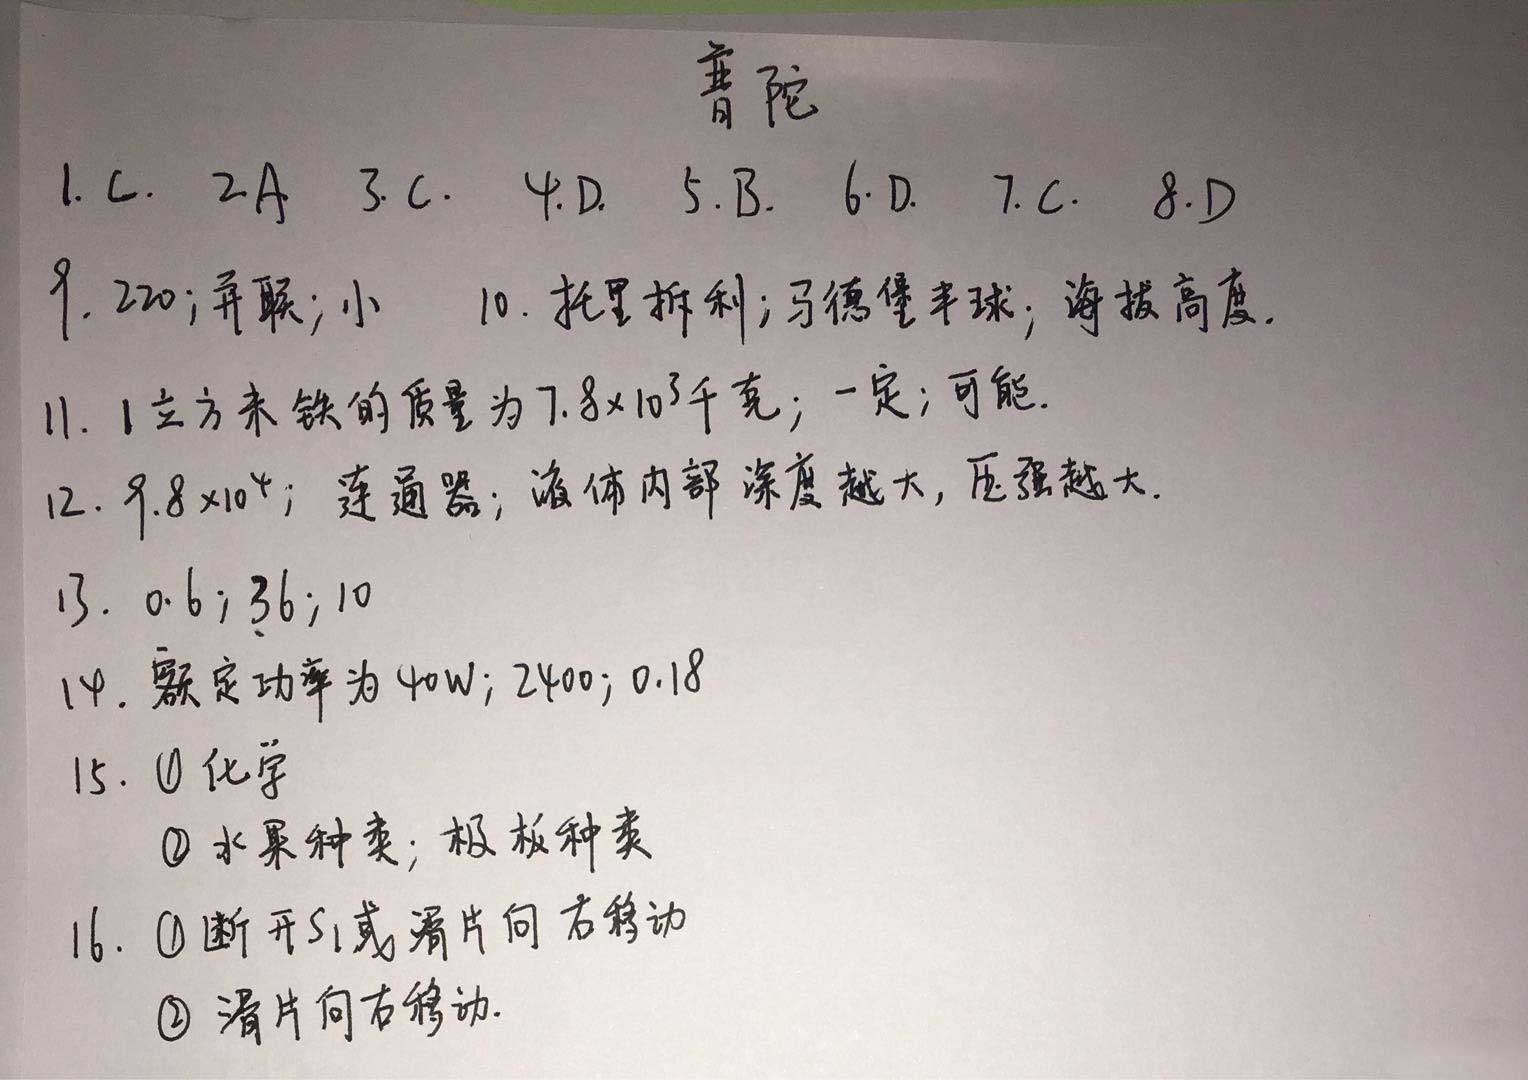 普陀
1. C. 2A 3. C. 4. D. 5. B. 6. D. 7. C. 8. D
9. 220; 并联; 小 10. 托里拆利; 马德堡半球; 海拔高度.
11. 1立方米铁的质量为7.8×10³千克; 一定; 可能.
12. 9.8×10⁴; 连通器; 液体内部深度越大, 压强越大.
13. 0.6; 36; 10
14. 额定功率为40W; 2400; 0.18
15. ① 化学
② 水果种类; 极板种类
16. ① 断开S₁或滑片向右移动
② 滑片向右移动.